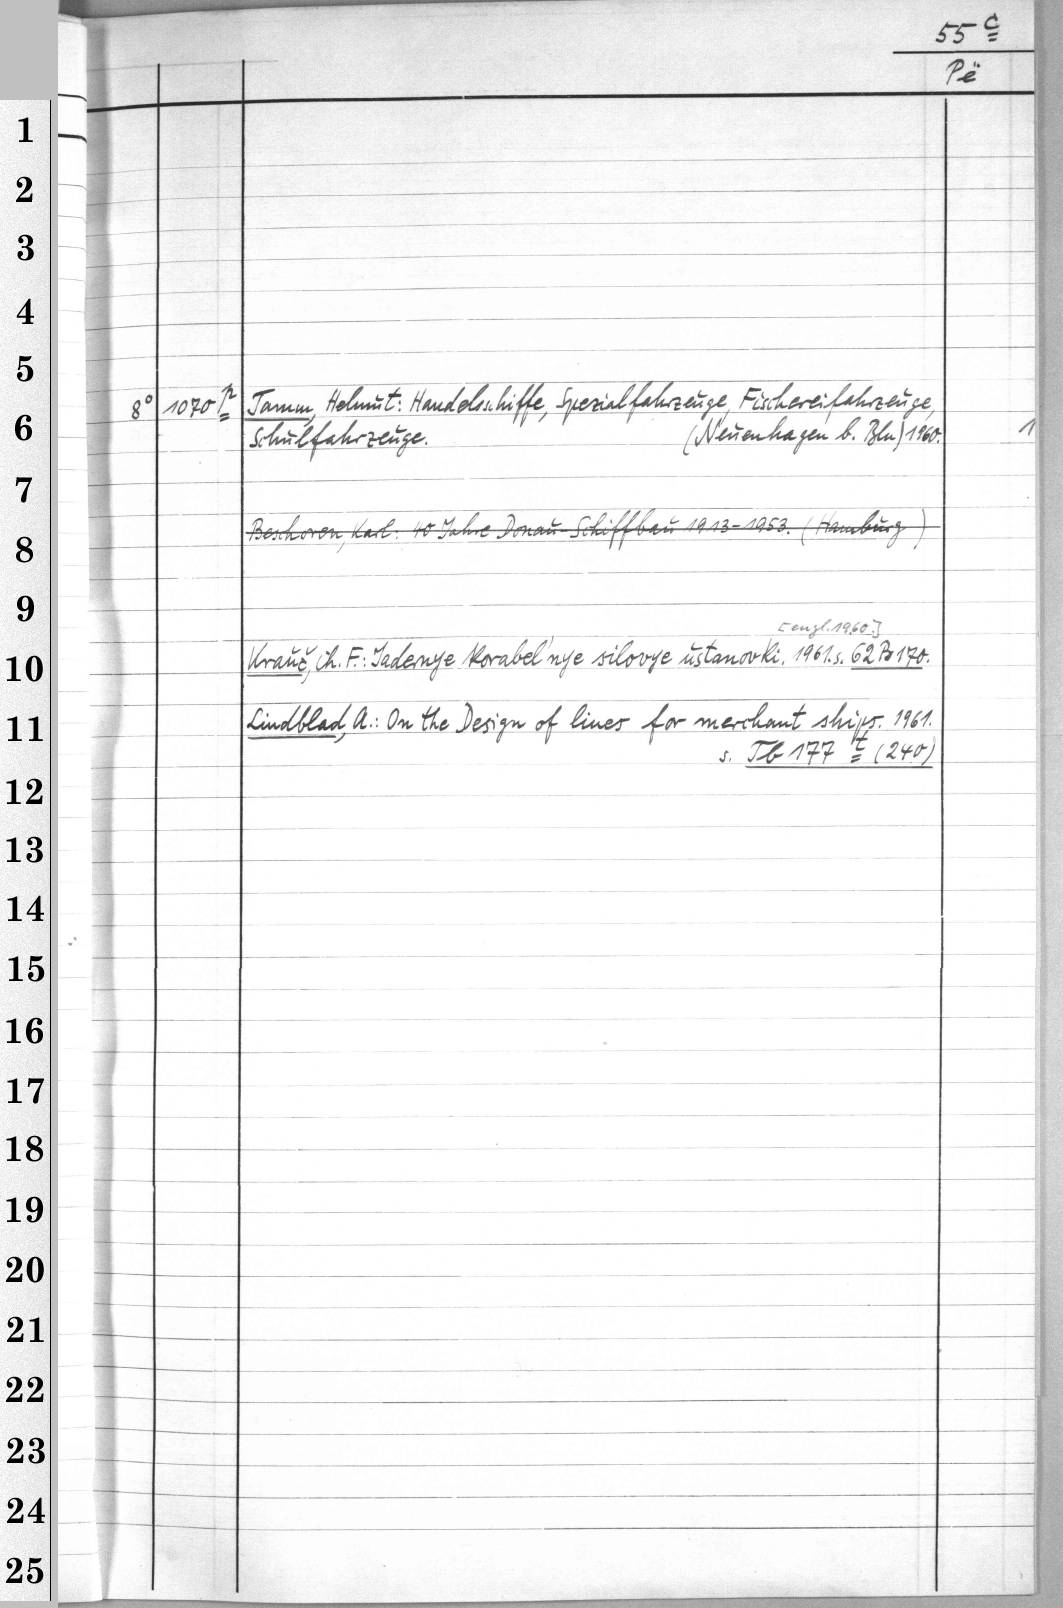 55 c
Pë
1
2
3
4
5
8° 1070 p Tamm, Helmut: Handelsschiffe, Spezialfahrzeuge, Fischereifahrzeuge,
6
Schulfahrzeuge. (Neuenhagen b. Bln) 1960.
7
Beschoren, Karl: 40 Jahre Donau-Schiffbau 1913-1953. (Hamburg )
8
9
[engl. 1960.]
10 Krauč, Ch. F.: Jadernye korabel'nye silovye ustanovki. 1961. s. 62 Po 170.
11 Lindblad, A.: On the Design of lines for merchant ships. 1961.
s. Tb 177 t (240)
12
13
14
15
16
17
18
19
20
21
22
23
24
25